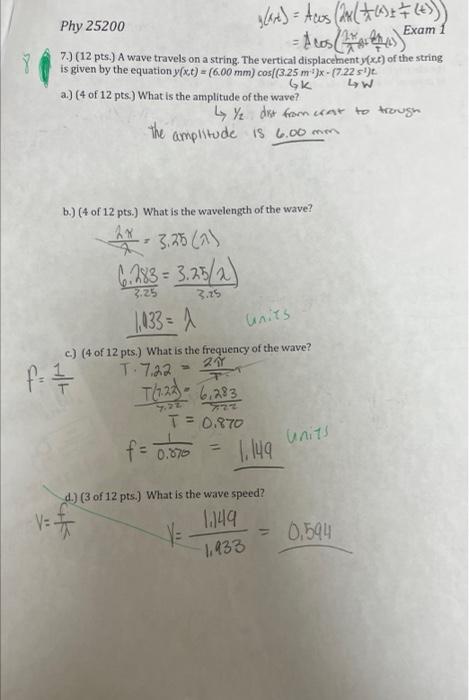 Phy 25200
y(x,t) = A cos (2π(1/λ(x) ± 1/T (t)))
Exam 1
= A cos (2π/λ
8
7.) (12 pts.) A wave travels on a string. The vertical displacement y(x,t) of the string
is given by the equation y(x,t) = (6.00 mm) cos[(3.25 m⁻¹)x - (7.22 s⁻¹)t.
↳K ↳W
a.) (4 of 12 pts.) What is the amplitude of the wave?
↳ 1/2 dist from crest to trough
The amplitude is 6.00 mm
b.) (4 of 12 pts.) What is the wavelength of the wave?
2π/λ = 3.25 (λ)
6.283 = 3.25(λ)
3.25 3.25
1.933 = λ units
c.) (4 of 12 pts.) What is the frequency of the wave?
f = 1/T
T · 7.22 = 2π/T · T
T(7.22) = 6.283
7.22 7.22
T = 0.870
f = 1/0.870 = 1.149 units
d.) (3 of 12 pts.) What is the wave speed?
V = f/λ
V = 1.149/1.933 = 0.594